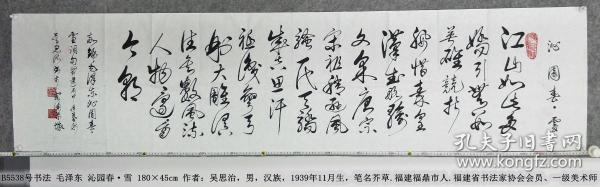 沁園春·雪
江山如此多
嬌引無數
英雄競折
腰惜秦皇
漢武略輸
文采唐宗
宋祖稍遜風
騷一代天驕
成吉思汗
祗識彎弓
射大雕俱
往矣數風流
人物還看
今朝
毛澤東沁園春
雪詞句
孔夫子旧书网
B5538号书法 毛泽东 沁园春·雪 180×45cm 作者：吴思治，男，汉族，1939年11月生，笔名芥草. 福建福鼎市人. 福建省书法家协会会员、一级美术师